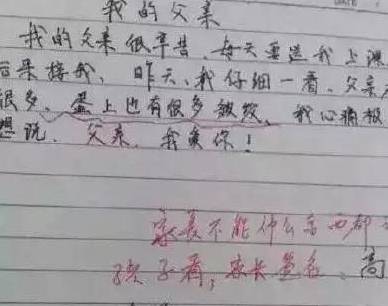 我的父亲
我的父亲很辛苦、每天要送我上课
后来接我、昨天、我仔细一看、父亲
很多、蛋上也有很多皱纹、我心痛极
想说、父亲、我爱你！
家长不能什么东西都
孩子看，家长签名、高